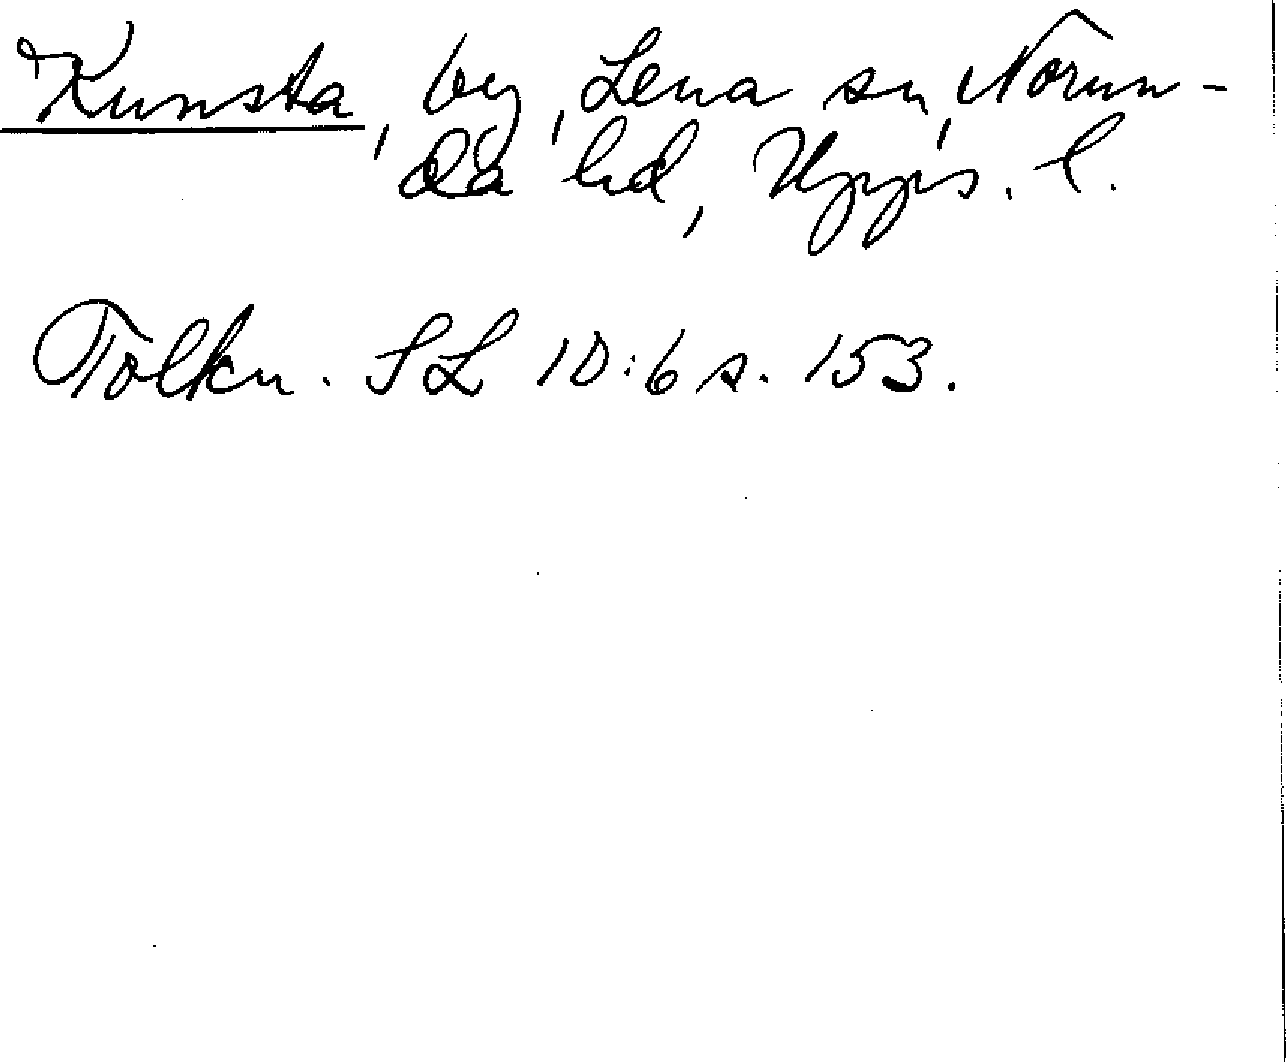 Kunsta, by, Lena sn, Norun-
da hd, Upps. l.
Tolkn. SL 10:6 s. 153.